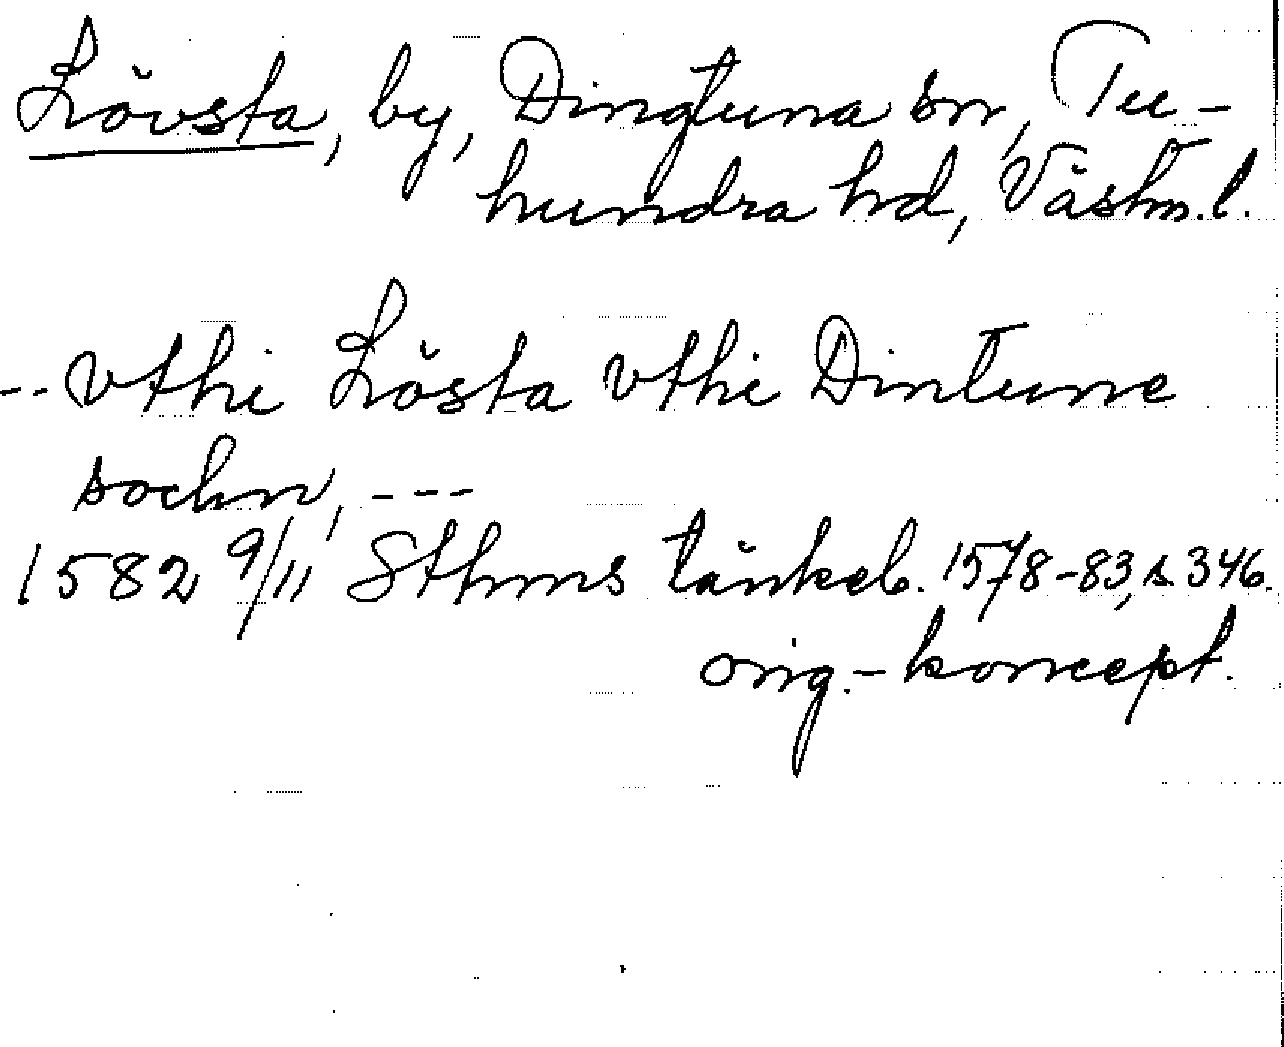 Lövsta, by, Dingtuna sn, Tu-
hundra hd, Västm. l.
-- vthi Lösta vthi Dintune
sochn, ---
1582 9/11 Sthms tänkeb. 1578-83, s. 346.
orig.-koncept.